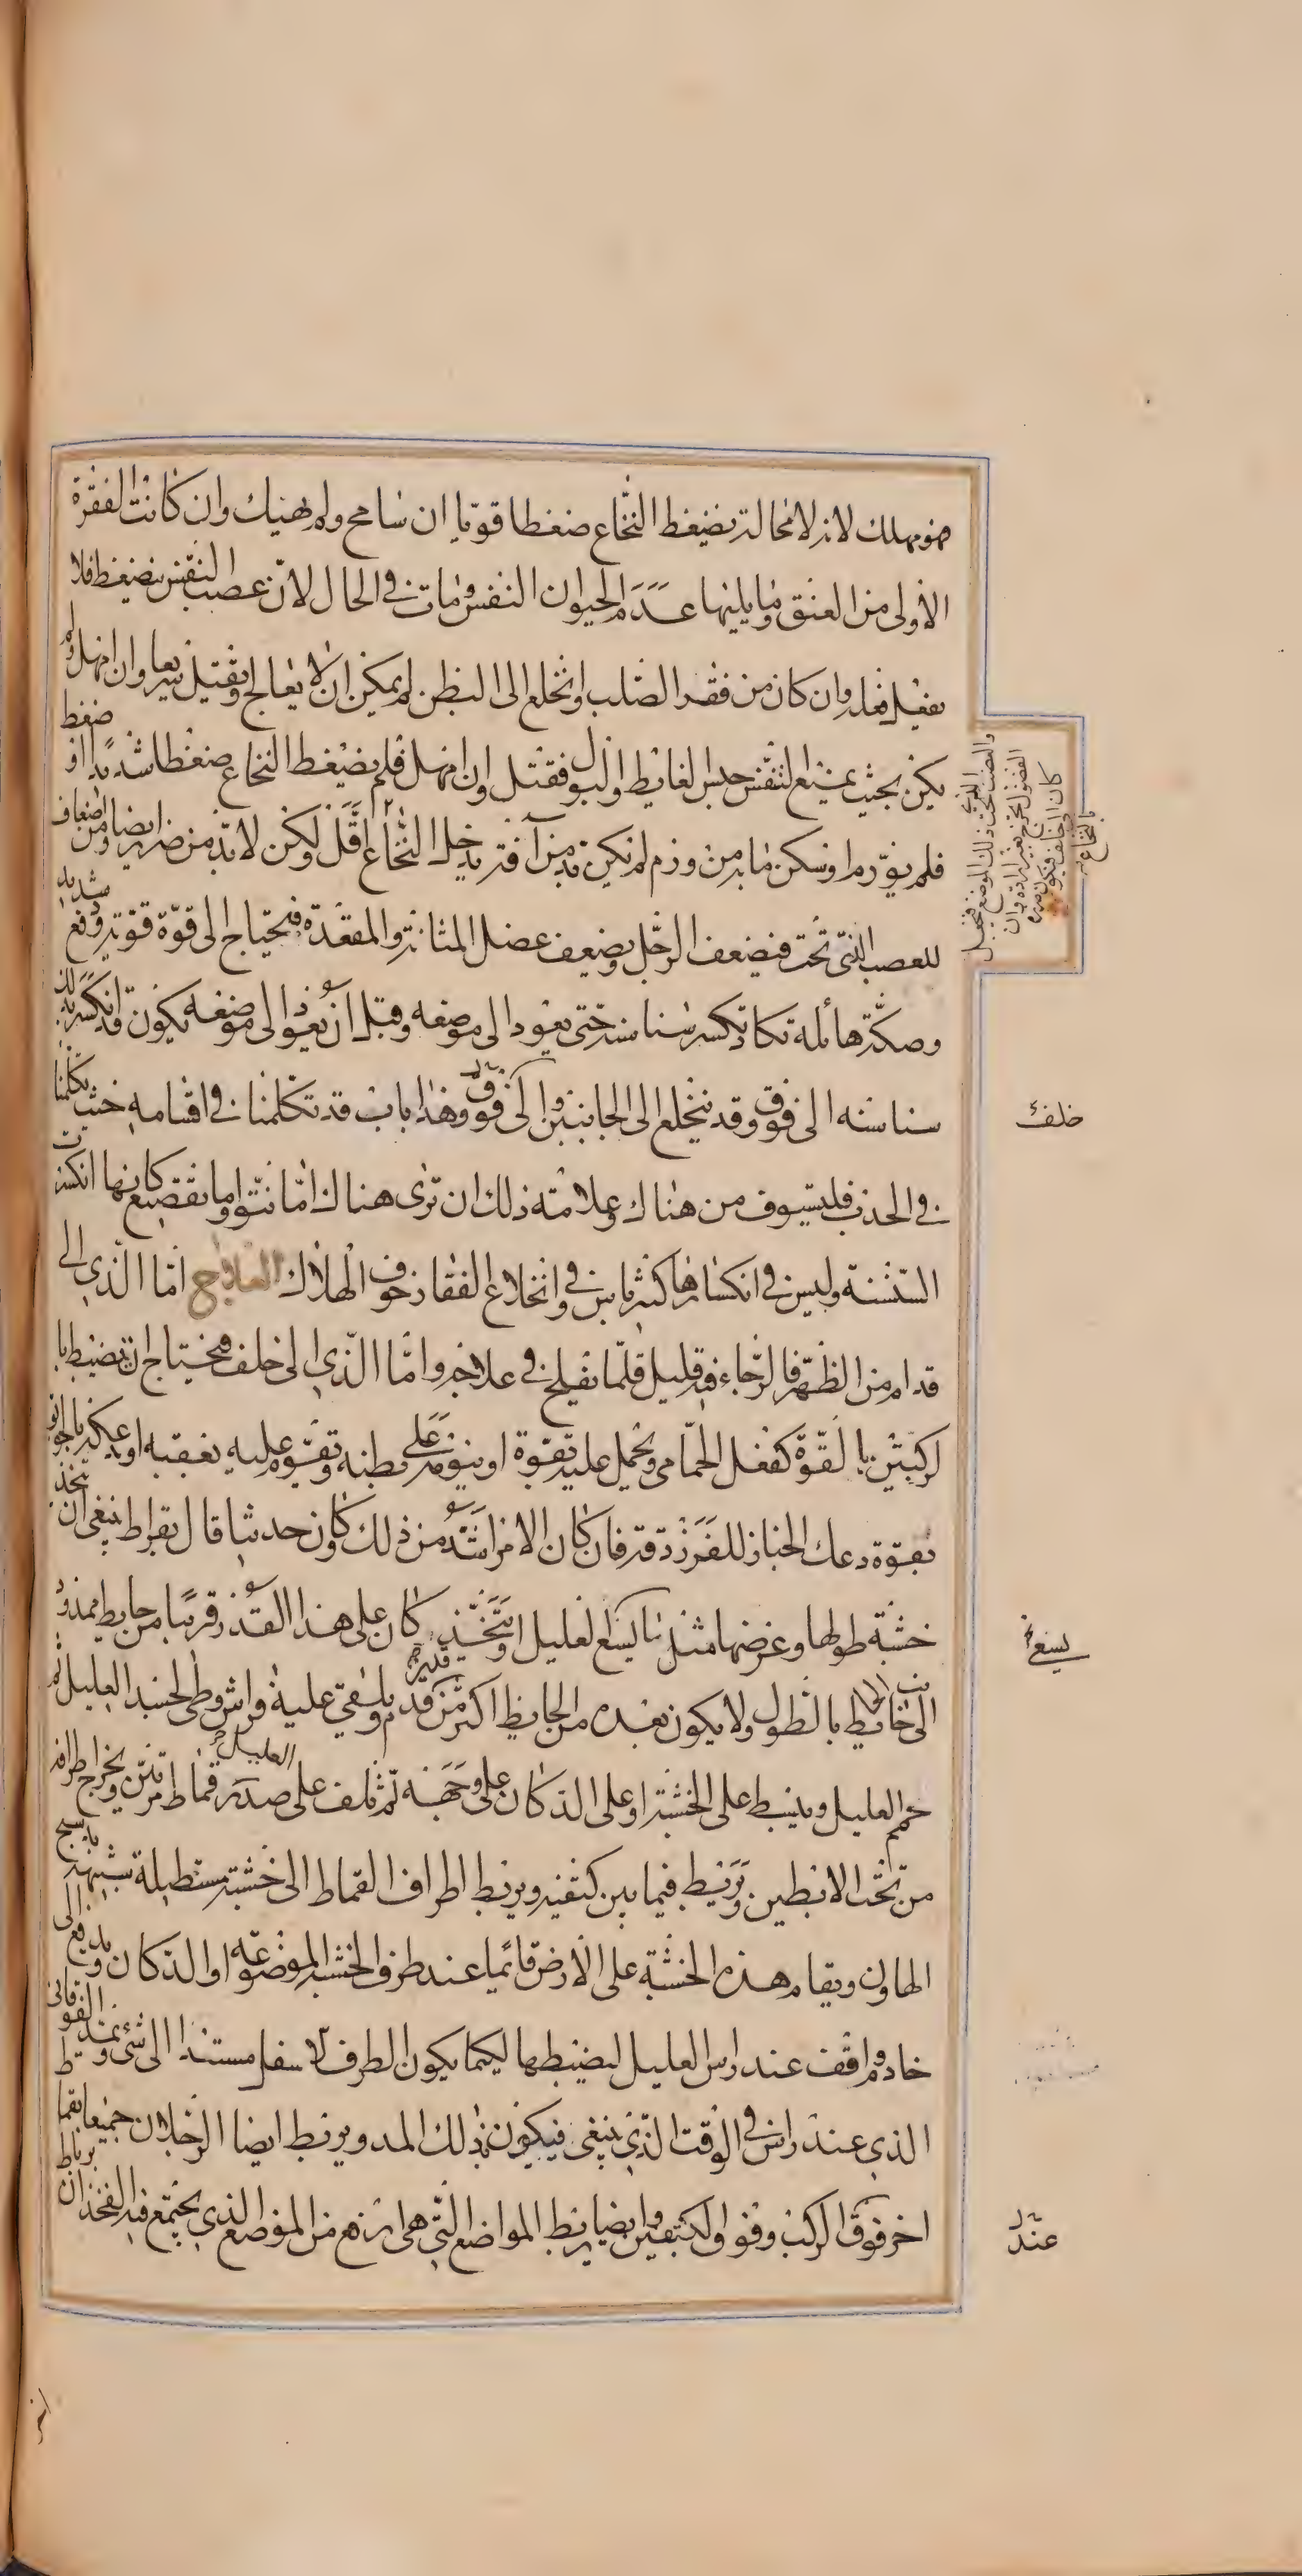 فهو مهلك لانه لا محالة يضغط النخاع ضغطا قويا ان سامح ولم يهنك وان كانت الفقرة
الاولى من العنق وما يليها عدم الحيوان النفس ومات في الحال لان عصب النفس ينضغط فلا
يفعل فعله وان كان من فقر الصلب وانخلع الى البطن لم يمكن ان لا يعالج وتقتل سريعا وان امهل ولم
يكن بحيث يمنع التنفس حبس الغايط والبول فقتل وان امهل فلم يضغط النخاع ضغطا شديدا او ضغط
فلم يورم او سكن ما به من ورم لم يكن بد من آفة يدخل النخاع اقل ولكن لا بد من ضرار ايضا ومن اضعاف
للعصب التي تحت فيضعف الرجل ويضعف عضل المثانة والمقعدة فيحتاج الى قوة قوية ودفع شديد
وصكة هائلة تكاد تكسر سناسنه حتى يعود الى موضعه وقبل ان يعود الى موضعه يكون قد انكسر بذلك
سناسنه الى فوق وقد ينخلع الى الجانبين والى فوق وهذا باب قد تكلمنا في اقسامه حيث تكلمنا
في الحدب فليستوف من هناك وعلامته ذلك ان ترى هناك اما نتوا واما تقصعا كانها انكسرت
السنسنة وليس في انكسارها كثير باس وفي انخلاع الفقار خوف الهلاك العلاج اما الذي الى
قدام من الظهر فالرجاء فيه قليل قلما يفلح في علاجه واما الذي الى خلف فيحتاج ان يضبط با
لركبتين بالقوة كفعل الحمامى ويحمل عليه بقوة او ينوم على بطنه وتقوم عليه بعقبه او يدعكه بالجوبق
بقوة دعك الخباز للفرزدقة فان كان الامر اشد من ذلك وكان حديثا قال بقراط ينبغي ان يتخذ
خشبة طولها وعرضها مثل ما يسع العليل او يتخذ دكان على هذا القدر قريبا من حايط ممدود
الى جانب الحايط بالطول ولا يكون بعده من الحايط اكثر من قدم ويلقى عليه فراش وطى لجسد العليل ثم
حمم العليل وينبسط على الخشبة او على الدكان على وجهه ثم يلف على صدر العليل قماط مرتين ويخرج اطرافه
من تحت الابطين وتربط فيما بين كتفيه ويربط اطراف القماط الى خشبة مستطيلة شبيهة بدستج
الهاون ويقام هذه الخشبة على الارض قائما عند طرف الخشبة الموضوعة او الدكان ويدفع الى
خادم واقف عند راس العليل ليضبطها ليكما يكون الطرف الاسفل مستندا الى شئ ويمد الفوقاني
الذي عند راس في الوقت الذي ينبغي فيكون بذلك المد ويربط ايضا الرجلان جميعا بقماط
اخر فوق الركب وفوق الكتفين وايضا يربط المواضع التي هي ارفع من الموضع الذي يجتمع فيه الفخذان برباط
والصلب تحت ذلك الموضع فتحبس
الفضول او تخرج بغير ارادة وان
كان الى خلف فيكون مضرة
بالنخاع
خلف
يسع
عند
اخر